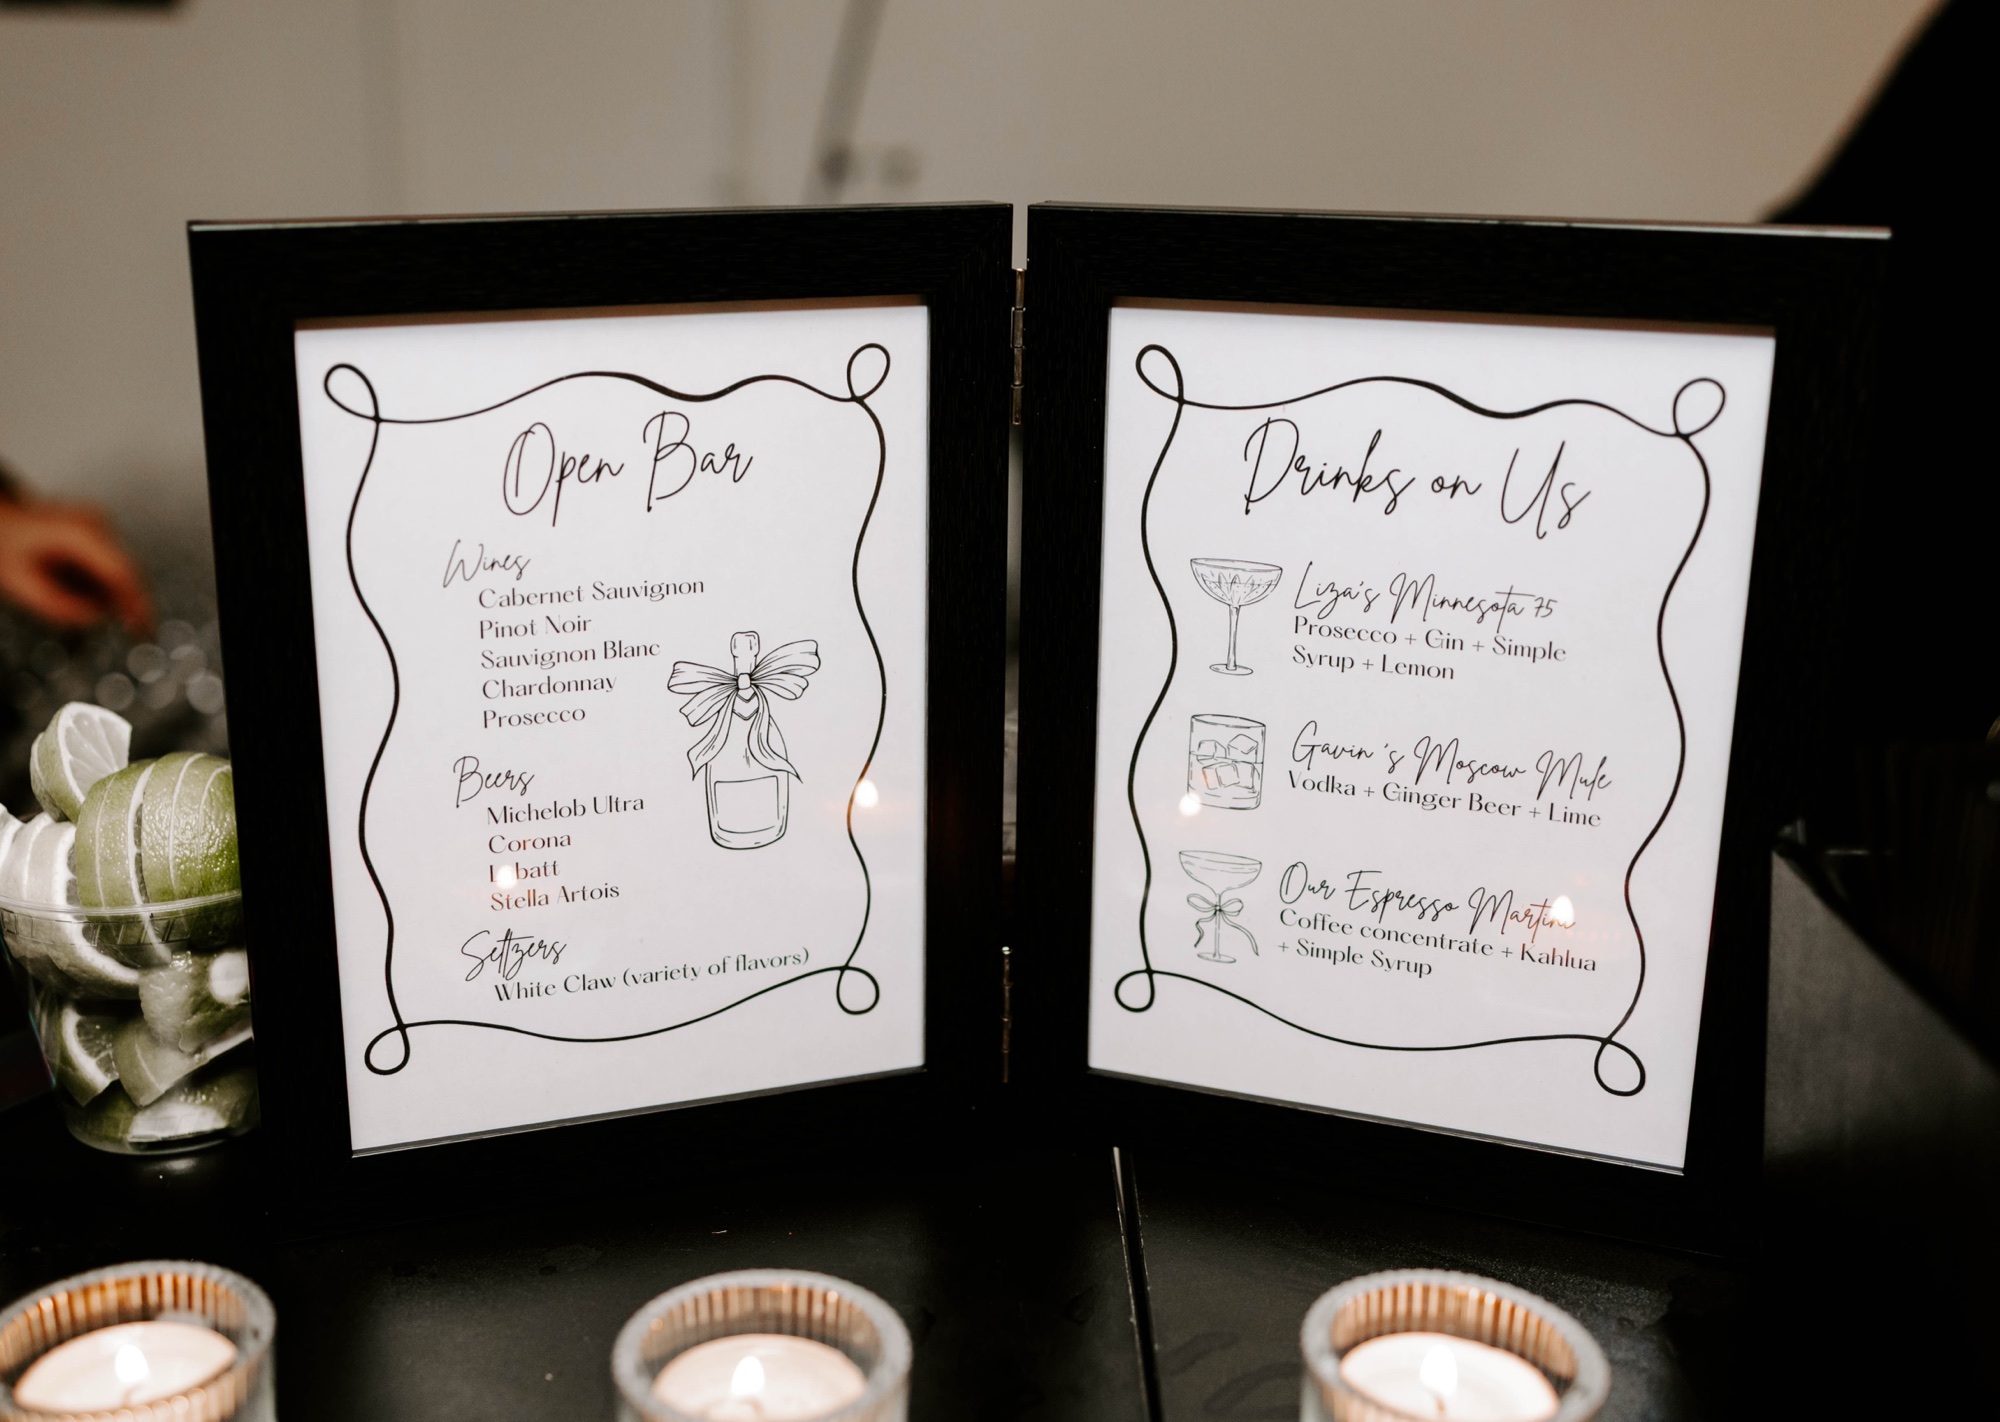 Open Bar
Wines
Cabernet Sauvignon
Pinot Noir
Sauvignon Blanc
Chardonnay
Prosecco
Beers
Michelob Ultra
Corona
Labatt
Stella Artois
Seltzers
White Claw (variety of flavors)
Drinks on Us
Liza's Minnesota 75
Prosecco + Gin + Simple
Syrup + Lemon
Gavin's Moscow Mule
Vodka + Ginger Beer + Lime
Our Espresso Martini
Coffee concentrate + Kahlua
+ Simple Syrup